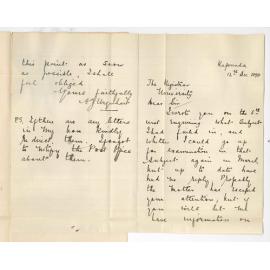 Kapunda
12th Dec 1890
The Registrar
University
Dear Sir
I wrote you on the 6th
inst enquiring what subject
I had failed in, and
whether I could go up
for examination in that
subject again in March
but up to date have
had no reply. Probably
the matter has escaped
your attention, but if
you will let me
have information on
this point as soon
as possible, I shall
feel obliged.
Yours faithfully
A. J.
PS. If there are any letters
in my name kindly
redirect them. I forgot
to notify the Post Office
about them.